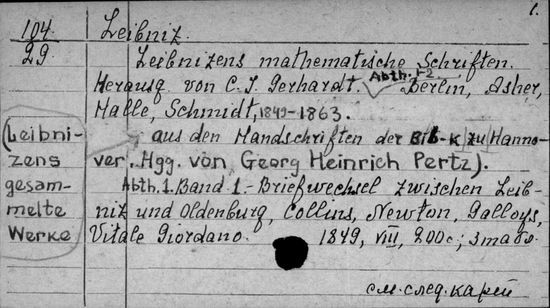 1.
104
29
Leibniz.
Leibnizens mathematische Schriften.
Herausg. von C. I. Gerhardt. Abth. 1-2 Berlin, Asher,
Halle, Schmidt, 1849-1863.
(Leibni-
zens
gesam-
melte
Werke
aus den Handschriften der Bib-k zu Hanno-
ver. Hgg. von Georg Heinrich Pertz).
Abth. 1. Band 1.- Briefwechsel zwischen Leib-
niz und Oldenburg, Collins, Newton, Galloys,
Vitale Giordano. 1849, VIII, 200 c;
см. след. карт